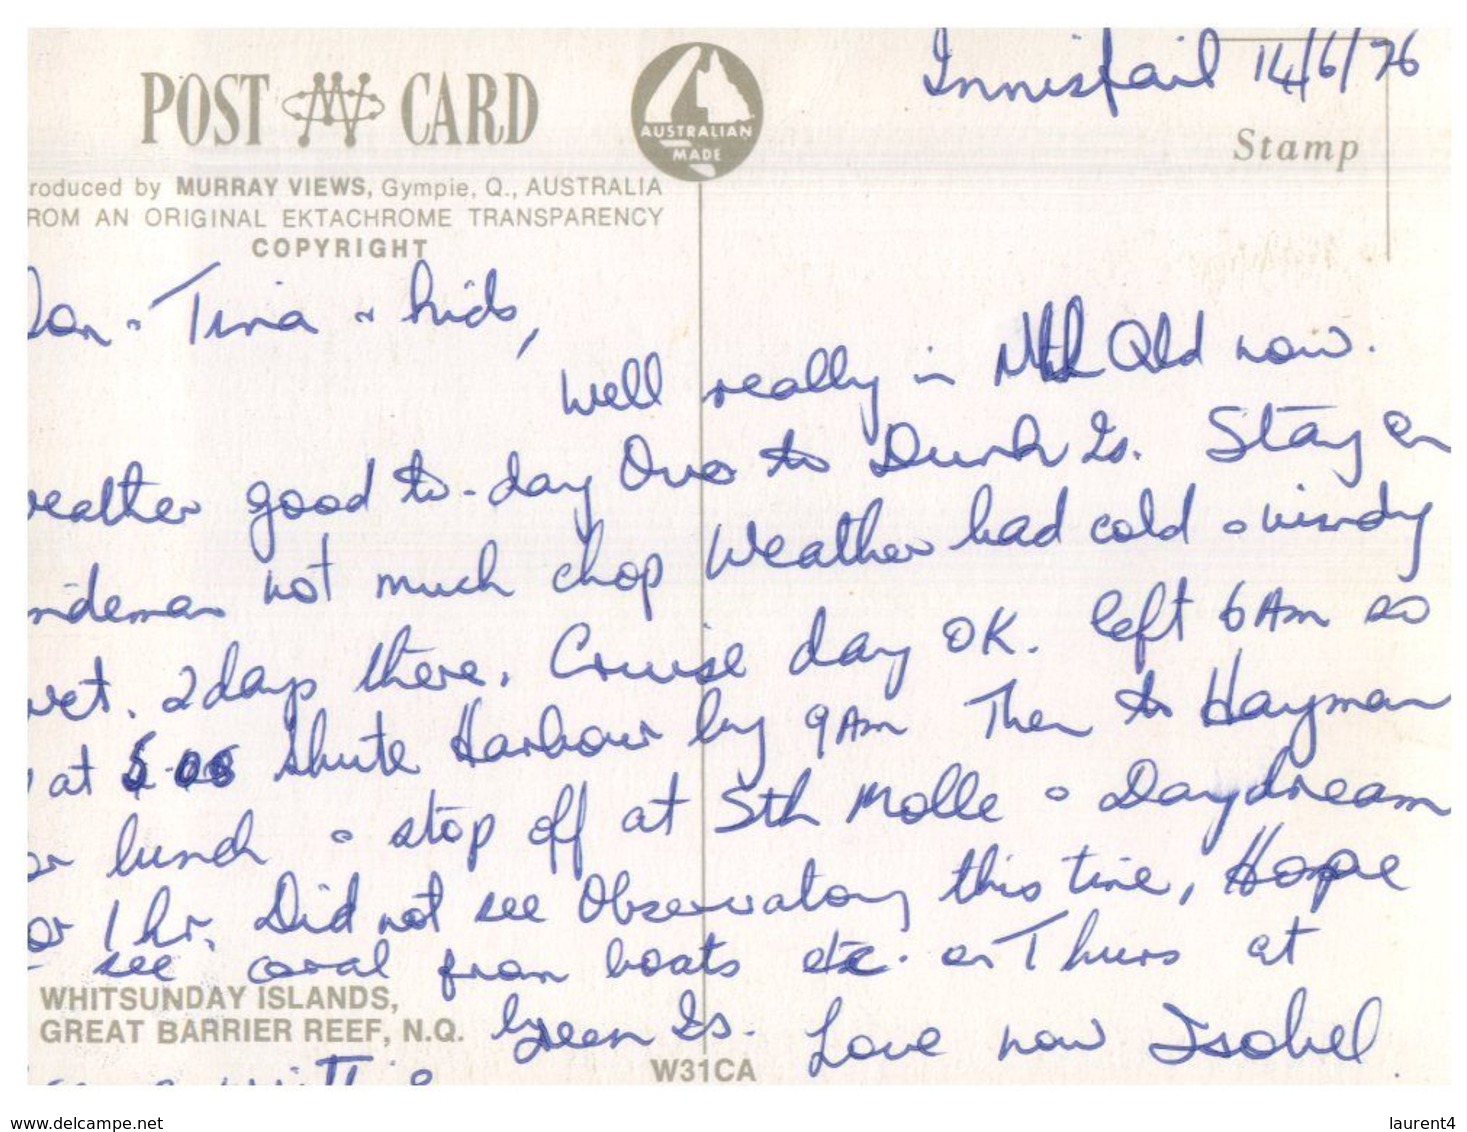 Innisfail 14/6/76
POST CARD
AUSTRALIAN
MADE
Stamp
roduced by MURRAY VIEWS, Gympie, Q., AUSTRALIA
ROM AN ORIGINAL EKTACHROME TRANSPARENCY
COPYRIGHT
Tina & kids,
Well really in Nth Qld now.
eather good to-day Over to Dunk Is. Stay on
ndeman not much chop Weather bad cold & windy
wet. 2 days there. Cruise day OK. left 6 AM so
at Shute Harbour by 9 AM Then to Hayman
or lunch & stop off at Sth Molle & Daydream
or 1 hr. Did not see Observatory this time, Hope
see coral from boats etc. on Thurs at
Green Is. Love now Isobel
WHITSUNDAY ISLANDS,
GREAT BARRIER REEF, N.Q.
W31CA
www.delcampe.net
laurent4